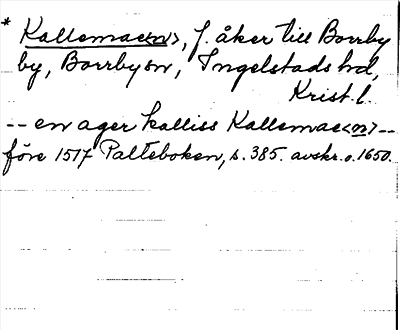 * Kallemae<n>, f. åker till Borrby
by, Borrby sn, Ingelstads hd,
Krist. l.
-- en ager kalliss Kallemae<n> --
före 1517 Palteboken, s. 385. avskr. o. 1650.